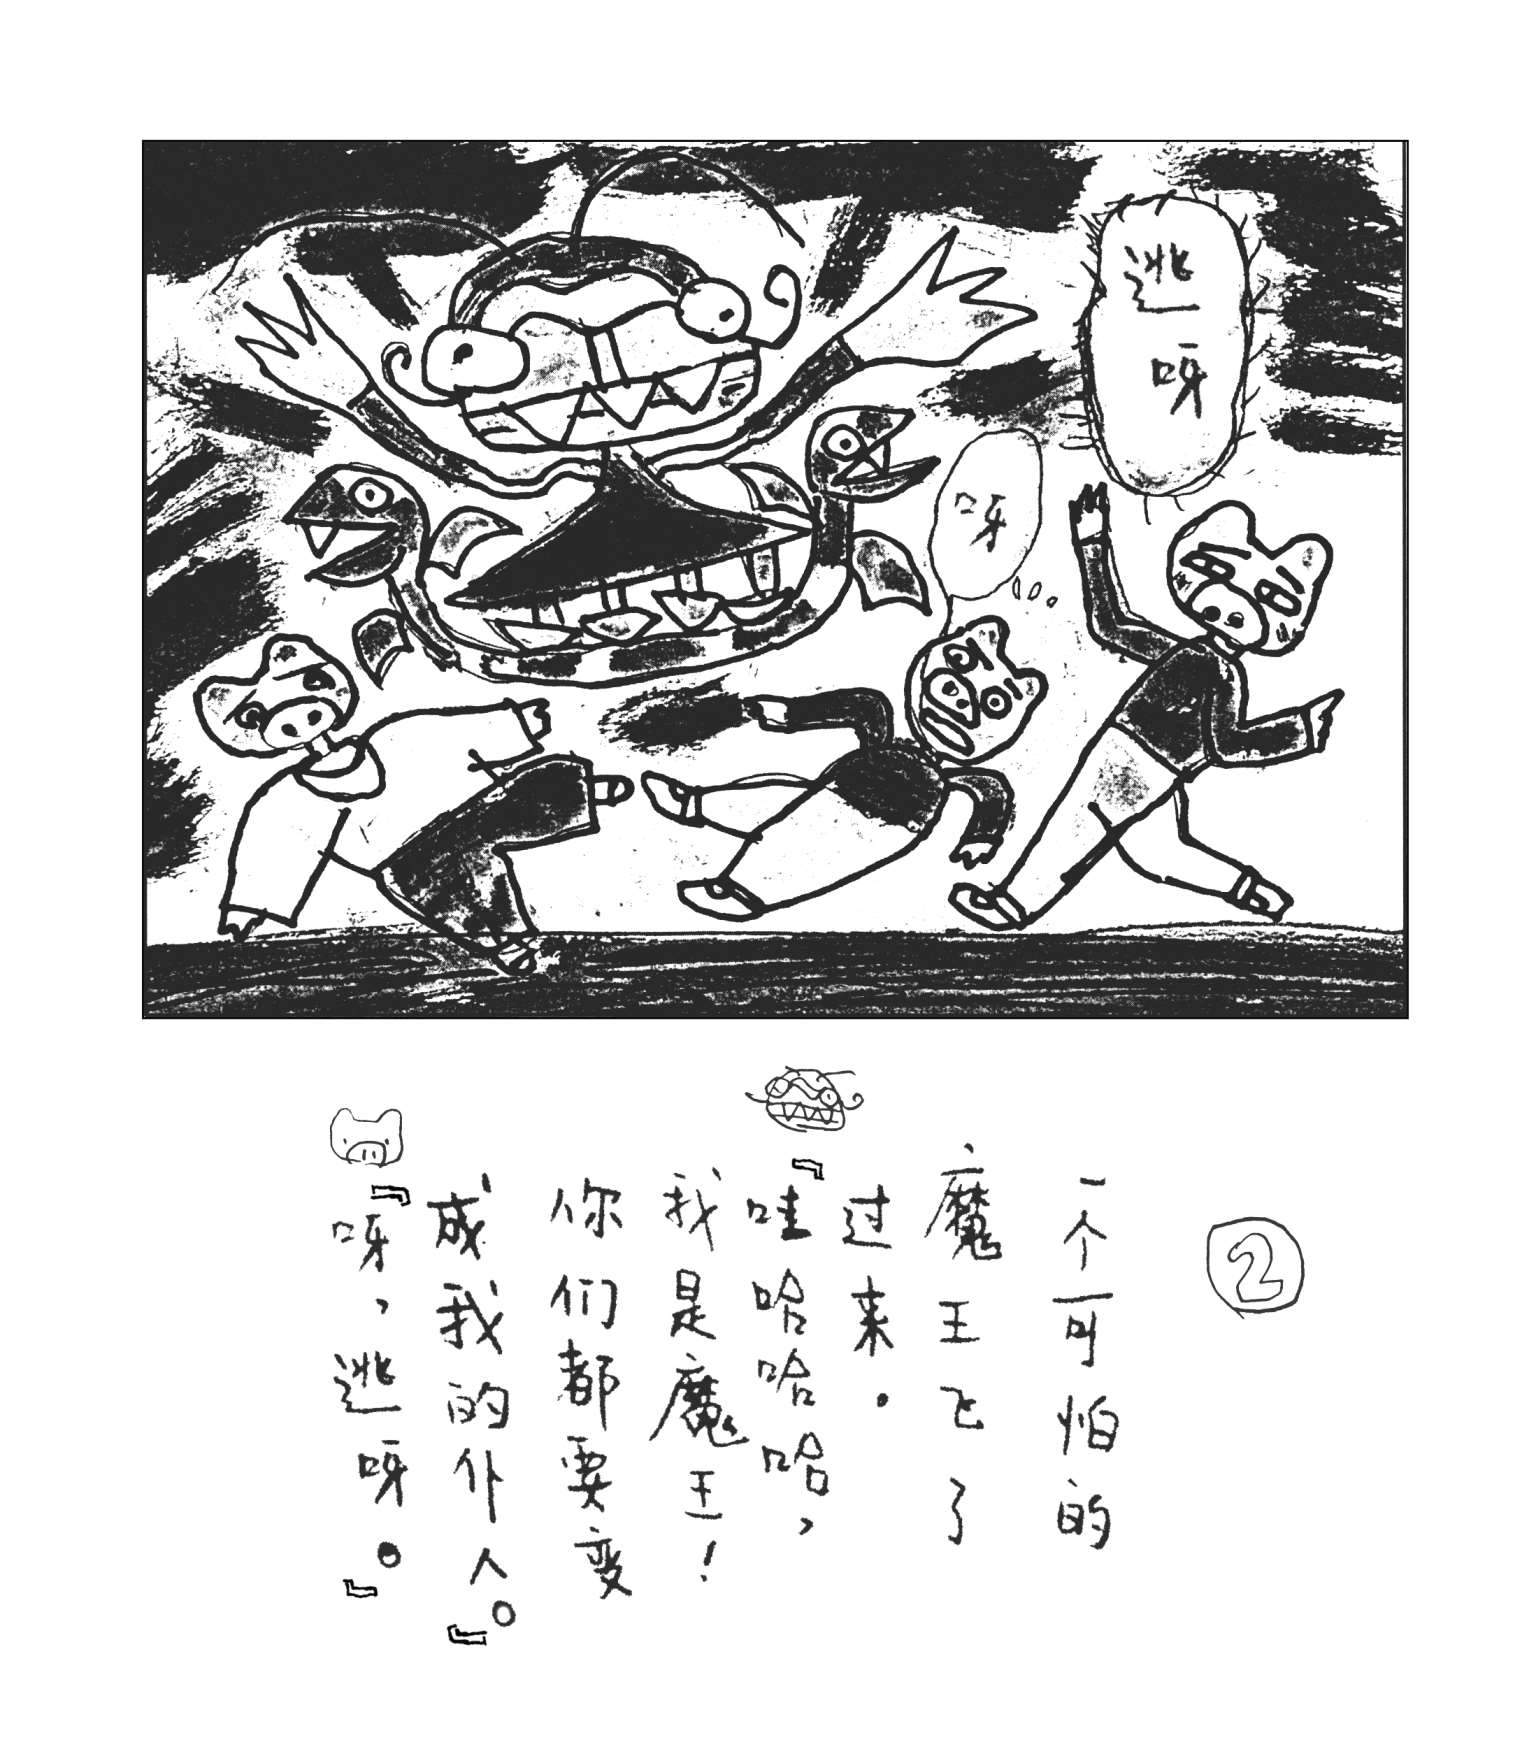 逃呀
呀
②
一个可怕的
魔王飞了
过来.
『哇哈哈哈，
我是魔王！
你们都要变
成我的仆人。』
『呀，逃呀。』